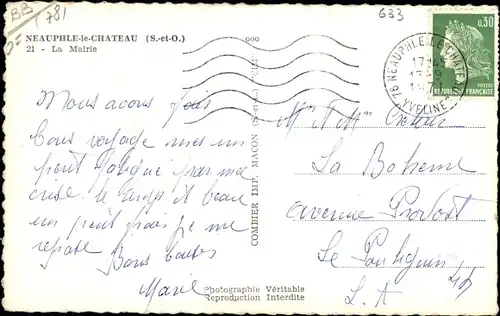 BB
781
633
NEAUPHLE-le-CHATEAU (S.-et-O.)
21 - La Mairie
0.30
POSTES
REPUBLIQUE FRANÇAISE
78 NEAUPHLE LE CHATEAU
17H45
YVELINES
Nous avons fait
bon voyage mes un
peu fatigué par ma
crise. le temps et beau
un peut frais je me
repose Bons baisers
Marie
COMBIER IMP. MACON (S.-et-L.) "CIM"
Mr et Mme
La Boheme
avenue Prevost
Le Pouliguen 44
L. A
Photographie Véritable
Reproduction Interdite